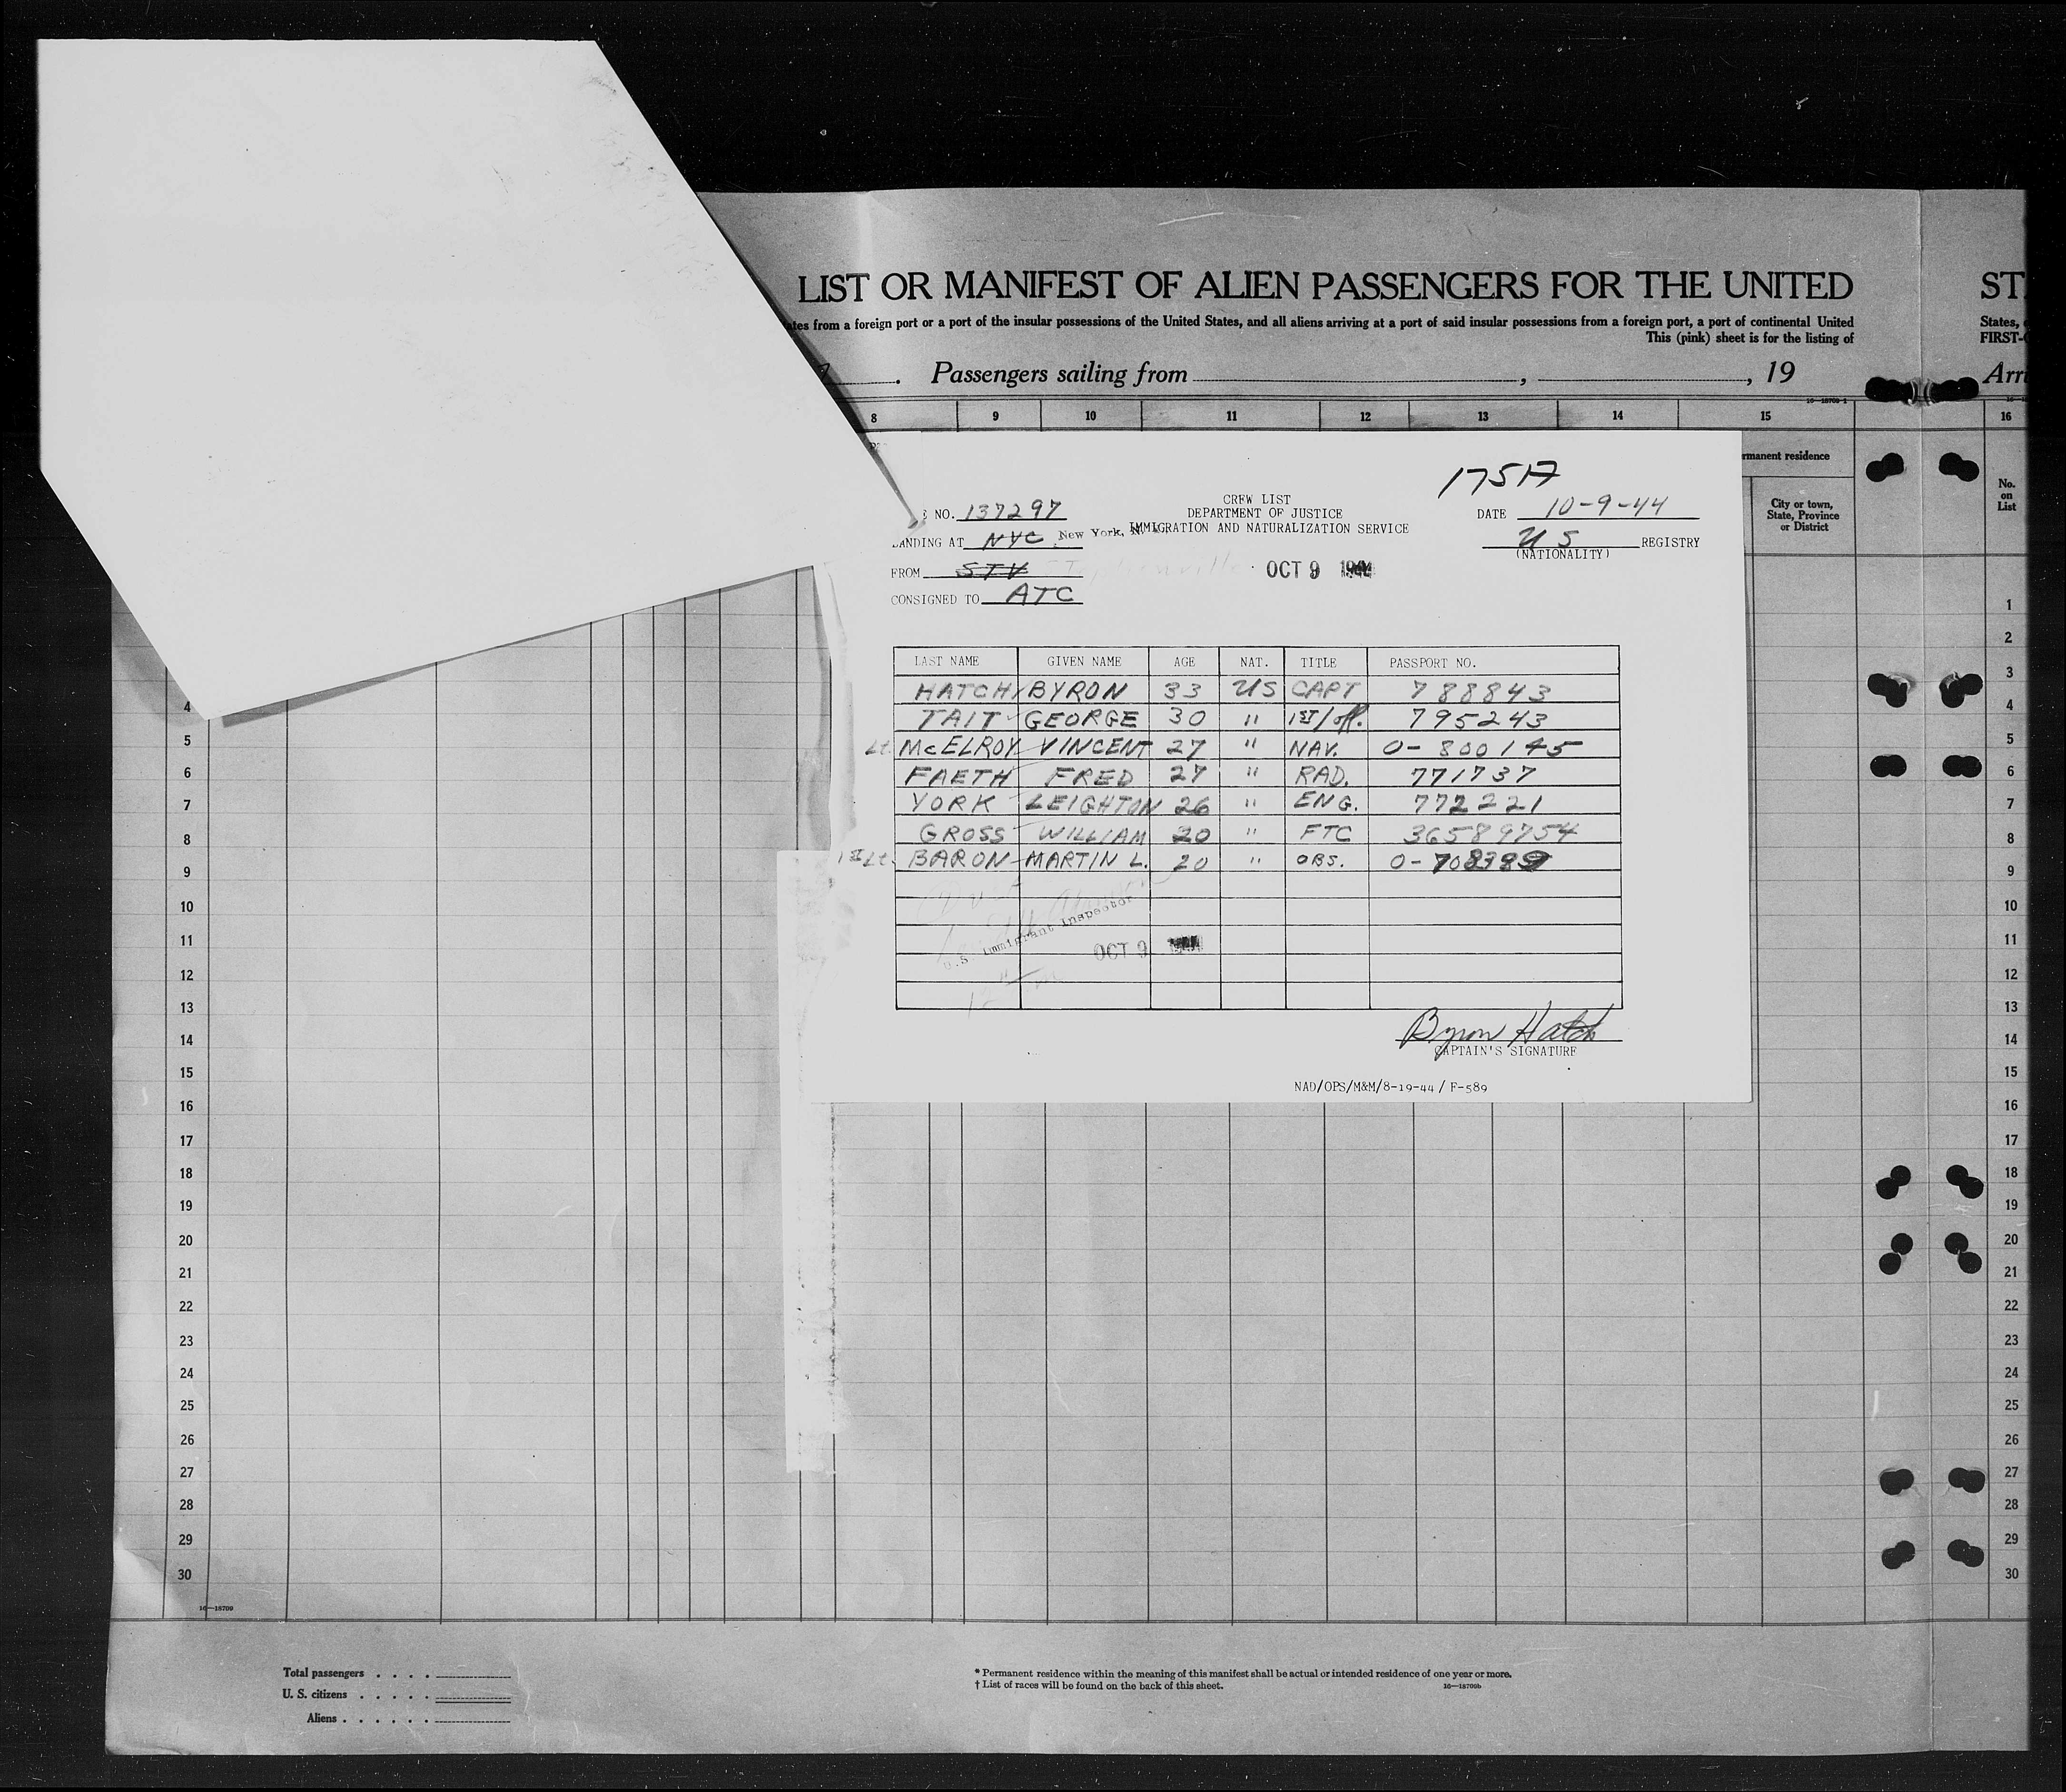 LIST OR MANIFEST OF ALIEN PASSENGERS FOR THE UNITED
ates from a foreign port or a port of the insular possessions of the United States, and all aliens arriving at a port of said insular possessions from a foreign port, a port of continental United
This (pink) sheet is for the listing of
Passengers sailing from , , 19
ST
States,
FIRST-
Arri
16—18709-1
8 9 10 11 12 13 14 15 16
rmanent residence
City or town, State, Province or District
No. on List
1751A
CREW LIST
DEPARTMENT OF JUSTICE
IMMIGRATION AND NATURALIZATION SERVICE
E NO. 137297
DATE 10-9-44
LANDING AT NYC New York, N.
US REGISTRY
(NATIONALITY)
FROM STV Stephenville
OCT 9 1944
CONSIGNED TO ATC
LAST NAME GIVEN NAME AGE NAT. TITLE PASSPORT NO.
HATCH BYRON 33 US CAPT 788843
TAIT GEORGE 30 " 1ST/off. 795243
Lt. McELROY VINCENT 27 " NAV. O-800145
FAETH FRED 27 " RAD. 771737
YORK LEIGHTON 26 " ENG. 772221
GROSS WILLIAM 20 " FTC 36589754
1st Lt. BARON MARTIN L. 20 " OBS. O-708389
U.S. Immigrant Inspector
OCT 9
Byron Hatch
CAPTAIN'S SIGNATURE
NAD/OPS/M&M/8-19-44/F-589
4
5
6
7
8
9
10
11
12
13
14
15
16
17
18
19
20
21
22
23
24
25
26
27
28
29
30
1
2
3
4
5
6
7
8
9
10
11
12
13
14
15
16
17
18
19
20
21
22
23
24
25
26
27
28
29
30
16—18709
Total passengers . . . .
U. S. citizens . . . . .
Aliens . . . . . .
* Permanent residence within the meaning of this manifest shall be actual or intended residence of one year or more.
† List of races will be found on the back of this sheet.
16—18709b